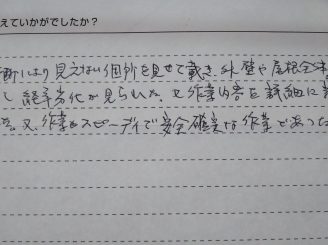 えていかがでしたか？
により見えない個所を見せて戴き、外壁や屋根全
し経年劣化が見られた。又作業内容を詳細に
又、作業もスピーディで安全確実な作業であった